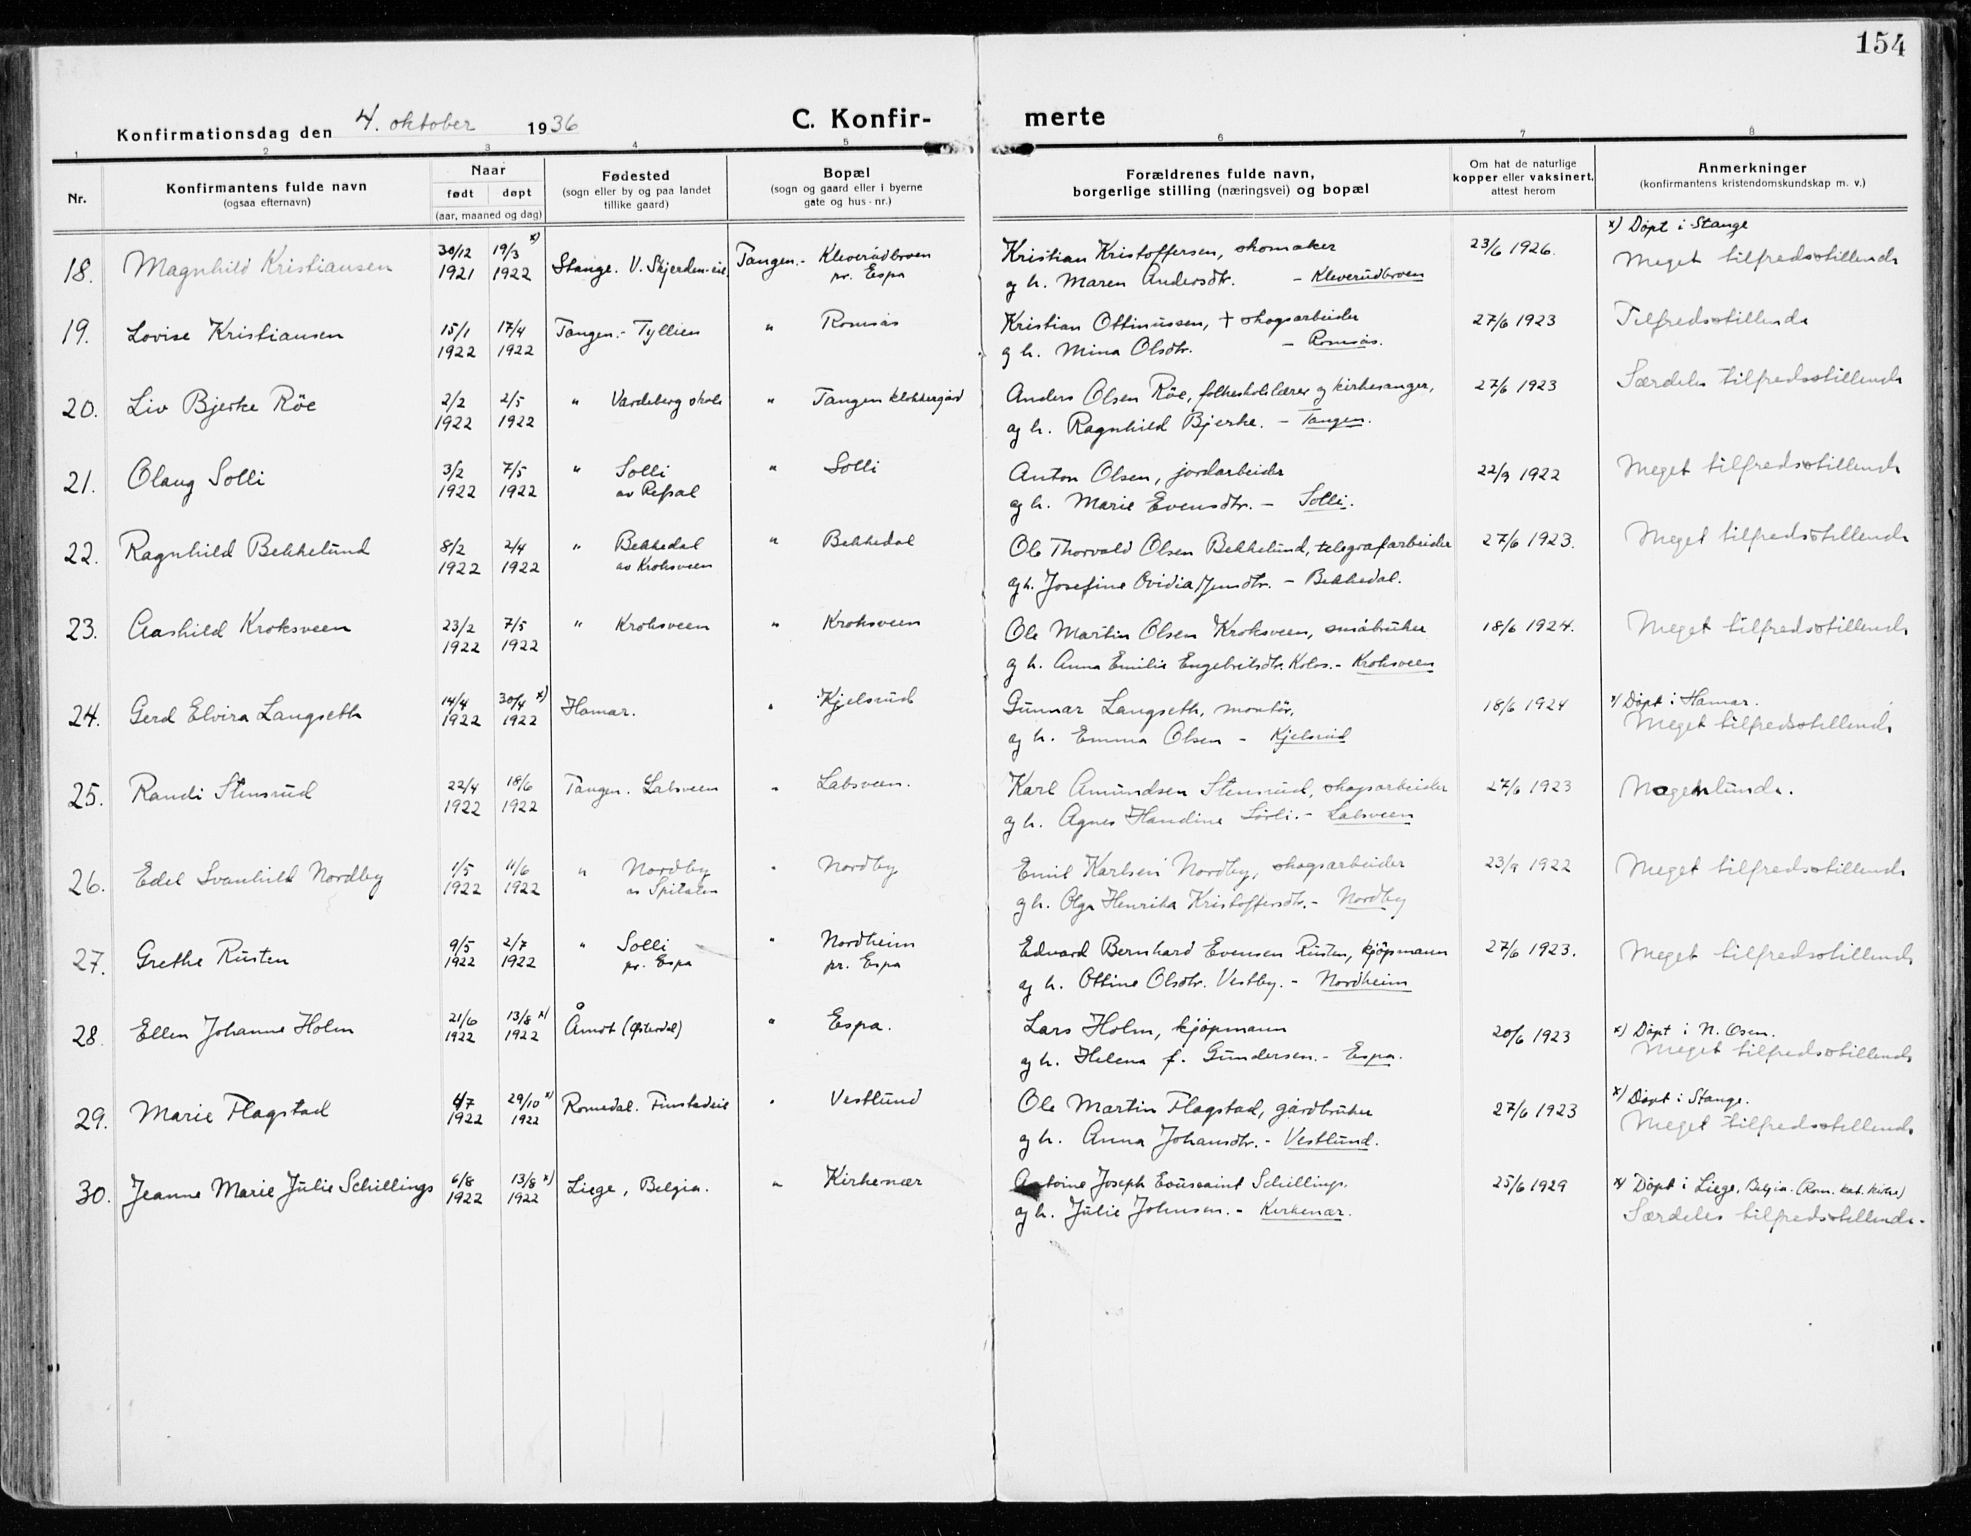 154
Konfirmationsdag den 4. oktober 1936
C. Konfir-
merte
1 2 3 4 5 6 7 8
Nr.
Konfirmantens fulde navn
(ogsaa efternavn)
Naar
født døpt
(aar, maaned og dag)
Fødested
(sogn eller by og paa landet
tillike gaard)
Bopæl
(sogn og gaard eller i byerne
gate og hus-nr.)
Forældrenes fulde navn,
borgerlige stilling (næringsvei) og bopæl
Om hat de naturlige
kopper eller vaksinert,
attest herom
Anmerkninger
(konfirmantens kristendomskundskap m. v.)
18. Magnhild Kristiansen 30/12 1921 19/3 x) 1922 Stange. V. Skjerden-eie Tangen.- Kleverudbroen pr. Espa
Kristian Kristoffersen, skomaker
og h. Maren Andersdtr. - Kleverudbroen
23/6 1926.
x) Døpt i Stange
Meget tilfredsstillende
19. Lovise Kristiansen 15/1 1922 17/4 1922 Tangen.- Tyllien " Romsås
Kristian Ottinussen, + skogsarbeider
og h. Mina Olsdtr. - Romsås.
27/6 1923
Tilfredsstillende
20. Liv Bjerke Röe 2/2 1922 2/5 1922 " Vardeberg skole " Tangen klokkergård
Anders Olsen Röe, folkeskolelærer og kirkesanger,
og h. Ragnhild Bjerke. - Tangen.
27/6 1923
Særdeles tilfredsstillende
21. Olaug Solli 3/2 1922 7/5 1922 " Solli av Refsal " Solli
Anton Olsen, jordarbeider
og h. Marie Evensdtr. - Solli.
22/9 1922
Meget tilfredsstillende
22. Ragnhild Bekkelund 8/2 1922 2/4 1922 " Bekkedal av Kroksveen " Bekkedal
Ole Thorvald Olsen Bekkelund, telegrafarbeider
og h. Josefine Ovidia Jensdtr. - Bekkedal.
27/6 1923.
Meget tilfredsstillende
23. Aashild Kroksveen 23/2 1922 7/5 1922 " Kroksveen " Kroksveen
Ole Martin Olsen Kroksveen, småbruker
og h. Anna Emilie Engebretsdtr. Kolos.- Kroksveen
18/6 1924.
Meget tilfredsstillende
24. Gerd Elvira Langseth 14/4 1922 30/4 x) 1922 Hamar. " Kjelsrud
Gunnar Langseth, montör,
og h. Emma Olsen - Kjelsrud
18/6 1924
x) Döpt i Hamar.
Meget tilfredsstillende
25. Randi Stensrud 22/4 1922 18/6 1922 Tangen. Labsveen " Labsveen.
Karl Amundsen Stensrud, skogsarbeider
og h. Agnes Handine Sörli.- Labsveen
27/6 1923
Nogenlunde.
26. Edel Svanhild Nordby 1/5 1922 11/6 1922 " Nordby av Spitalen " Nordby
Emil Karlsen Nordby, skogsarbeider
og h. Olga Henrika Kristoffersdtr.- Nordby
23/9 1922
Meget tilfredsstillende
27. Grethe Rusten 9/5 1922 2/7 1922 " Solli pr. Espa " Nordheim pr. Espa
Edvard Bernhard Evensen Rusten, kjöpmann
og h. Ottine Olsdtr. Vestby.- Nordheim
27/6 1923.
Meget tilfredsstillende
28. Ellen Johanne Holm 21/6 1922 13/8 x) 1922 Åmot (Østerdal) " Espa.
Lars Holm, kjöpmann
og h. Helena f. Gundersen.- Espa.
20/6 1923
x) Döpt i N. Osen.
Meget tilfredsstillende
29. Marie Flagstad 4/7 1922 29/10 x) 1922 Romedal. Finstadeie " Vestlund
Ole Martin Flagstad, gårdbruker
og h. Anna Johansdtr.- Vestlund.
27/6 1923
x) Döpt i Stange.
Meget tilfredsstillende
30. Jeanne Marie Julie Schillings 6/8 1922 13/8 x) 1922 Liege, Belgia. " Kirkenær
Antoine Joseph Toussaint Schillings.
og h. Julie Johnsen.- Kirkenær.
25/6 1929
x) Döpt i Liege, Belgia. (Rom. kat. kirke)
Særdeles tilfredsstillende.